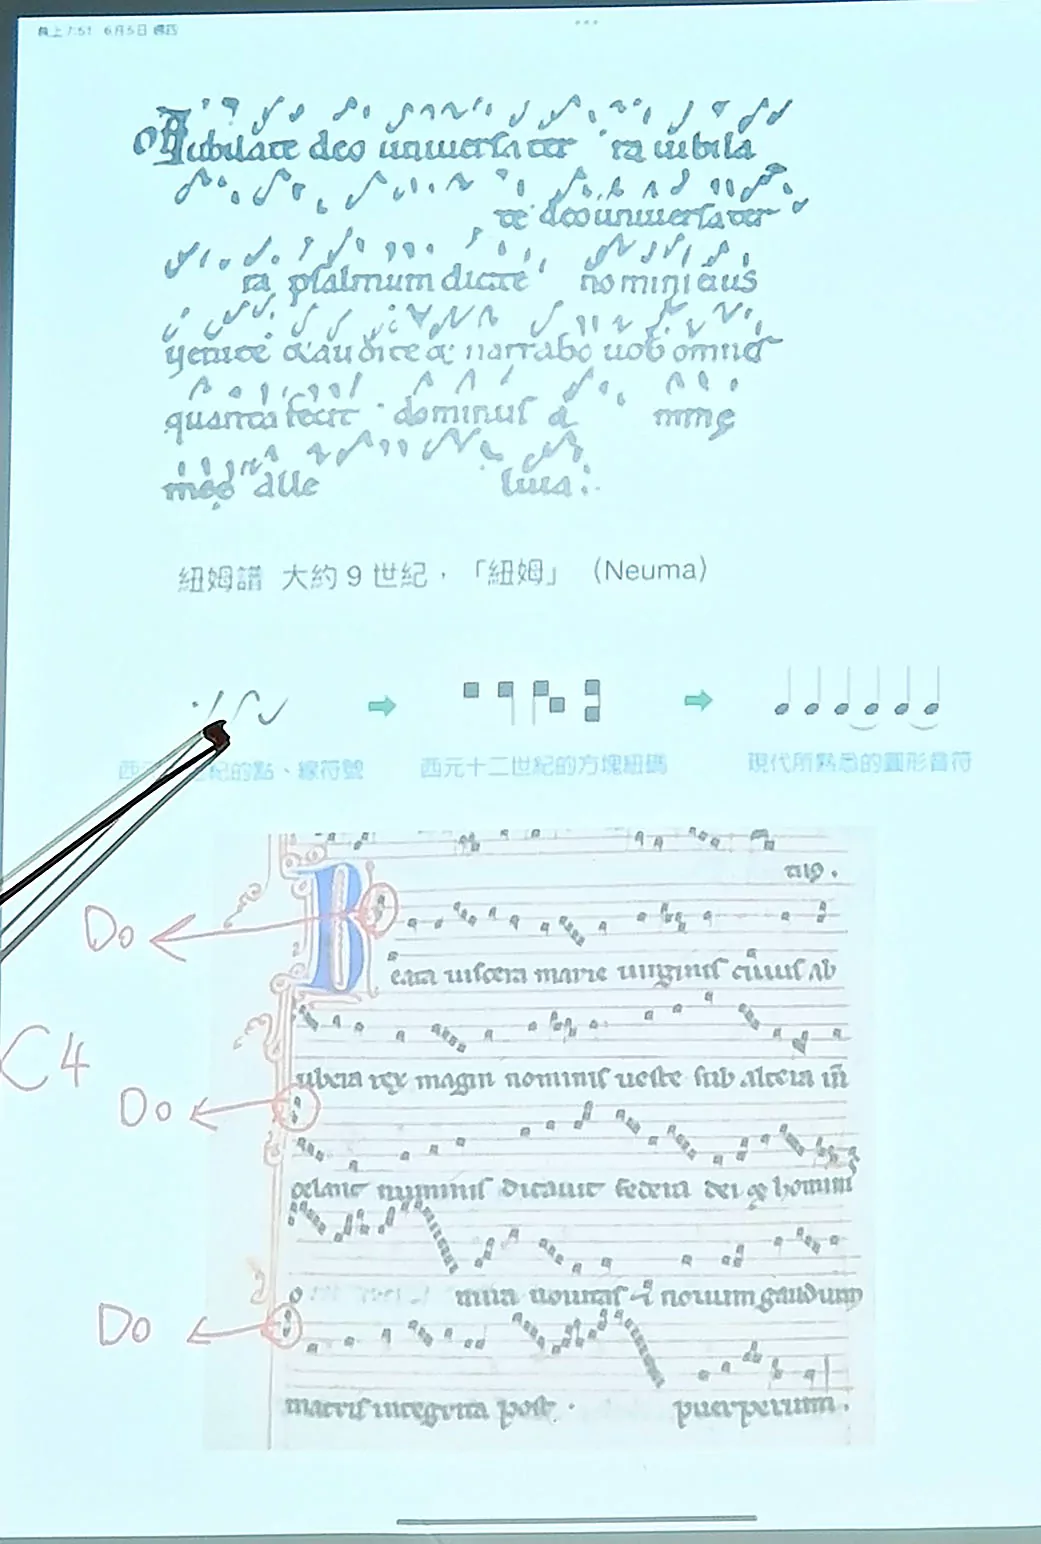 晚上7:51 6月5日 週四
Iubilate deo uniuersa ter ra iubila
te deo uniuersa ter
ra psalmum dicite nomini eius
uenite & audite & narrabo uob omnes
quanta fecit dominus a nimę
meę alle luia
紐姆譜 大約 9 世紀，「紐姆」（Neuma）
世紀的點、線符號
西元十二世紀的方塊紐碼
現代所熟悉的圓形音符
Do
B eata uiscera marie uirginis cuius ab
C4
ubera rex magni nominis ueste sub altera
Do
numinis dictauit federa dei & hominis
o mira nouitas & nouum gaudium
Do
matris integrita post puerperium.